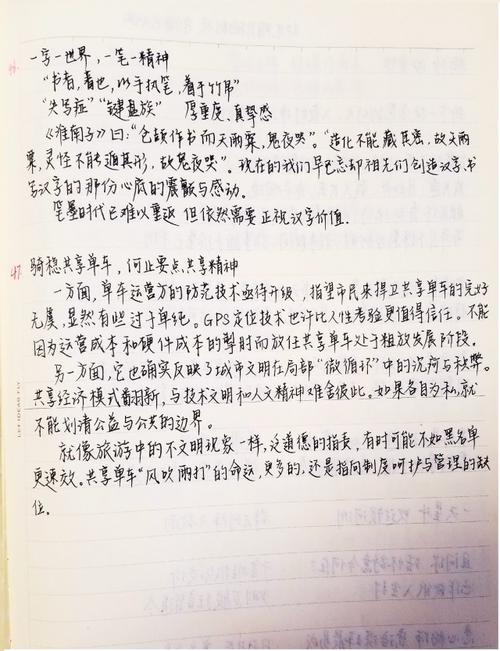 46. 一字一世界，一笔一精神
"书者，著也，以手执笔，著于竹帛"
"失写症""键盘族" 厚重度，真挚感
《淮南子》曰："仓颉作书而天雨粟，鬼夜哭"。"造化不能藏其密，故天雨
粟，灵怪不能遁其形，故鬼夜哭"。现在的我们早已忘却祖先们创造汉字、书
写汉字的那份心底的震颤与感动。
笔墨时代已难以重返 但依然需要正视汉字价值.
47. 骑想共享单车，何止要点共享精神
一方面，单车运营方的防范技术亟待升级，指望市民来捍卫共享单车的完好
无虞，显然有些过于单纯。GPS定位技术也许比人性考验更值得信任。不能
因为运营成本和硬件成本的掣肘而放任共享单车处于粗放发展阶段。
另一方面，它也确实反映了城市文明在局部"微循环"中的沉疴与积弊。
共享经济模式翻新，与技术文明和人文精神难舍彼此。如果各自为私，就
不能划清公益与公共的边界。
就像旅游中的不文明现象一样，泛道德的指责，有时可能不如黑名单
更速效。共享单车"风吹雨打"的命运，更多的，还是指向制度呵护与管理的缺
位.
LIFE IDEAS FLY